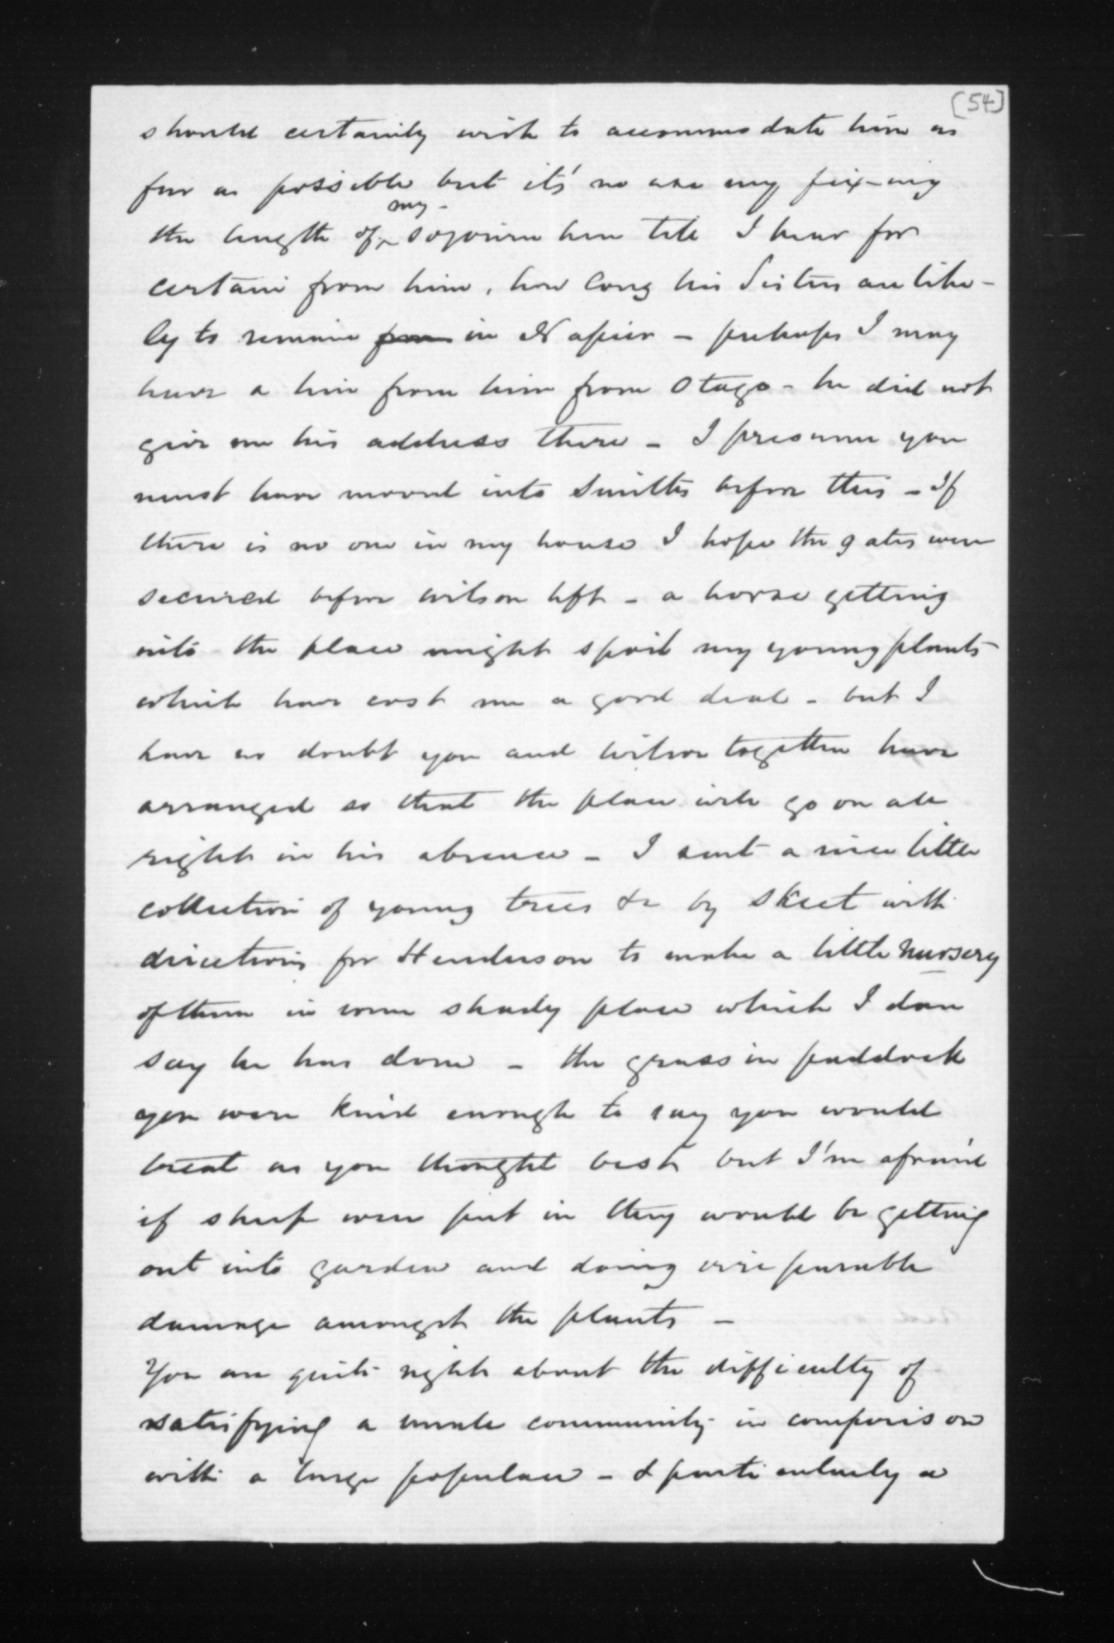 (54)
should certainly wish to accommodate him as
far as possible but it's no use my fix-ing
the length of my sojourn here till I hear for
certain from him, how long his Sisters are like-
ly to remain from in Napier - perhaps I may
have a line from him from Otago - he did not
give me his address there - I presume you
must have moved into Smiths before this - If
there is no one in my house I hope the gates were
secured before Wilson left - a horse getting
into the place might spoil my young plants
which have cost me a good deal - but I
have no doubt you and Wilson together have
arranged so that the place will go on all
right in his absence - I sent a nice little
collection of young trees &c by Skeet with
directions for Henderson to make a little nursery
of them in some shady place which I dare
say he has done - the grass in paddock
you were kind enough to say you would
treat as you thought best but I'm afraid
if sheep were put in they would be getting
out into garden and doing irreparable
damage amongst the plants -
You are quite right about the difficulty of
satisfying a small community in comparison
with a large populace - & particularly a